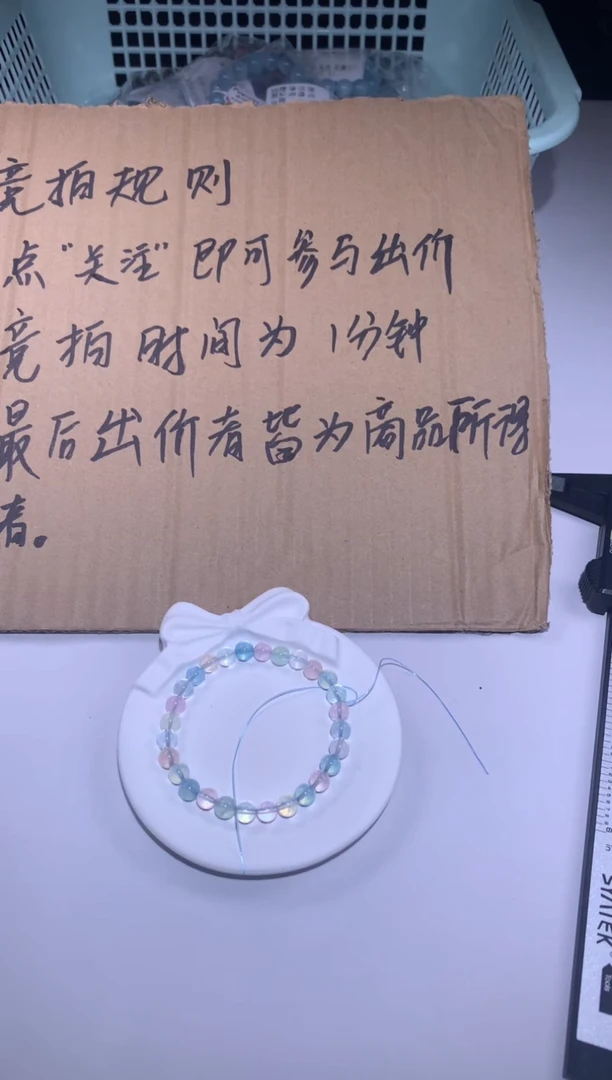 竞拍规则
点“关注”即可参与出价
竞拍时间为1分钟
最后出价者皆为商品所得
者。
SYNTEK